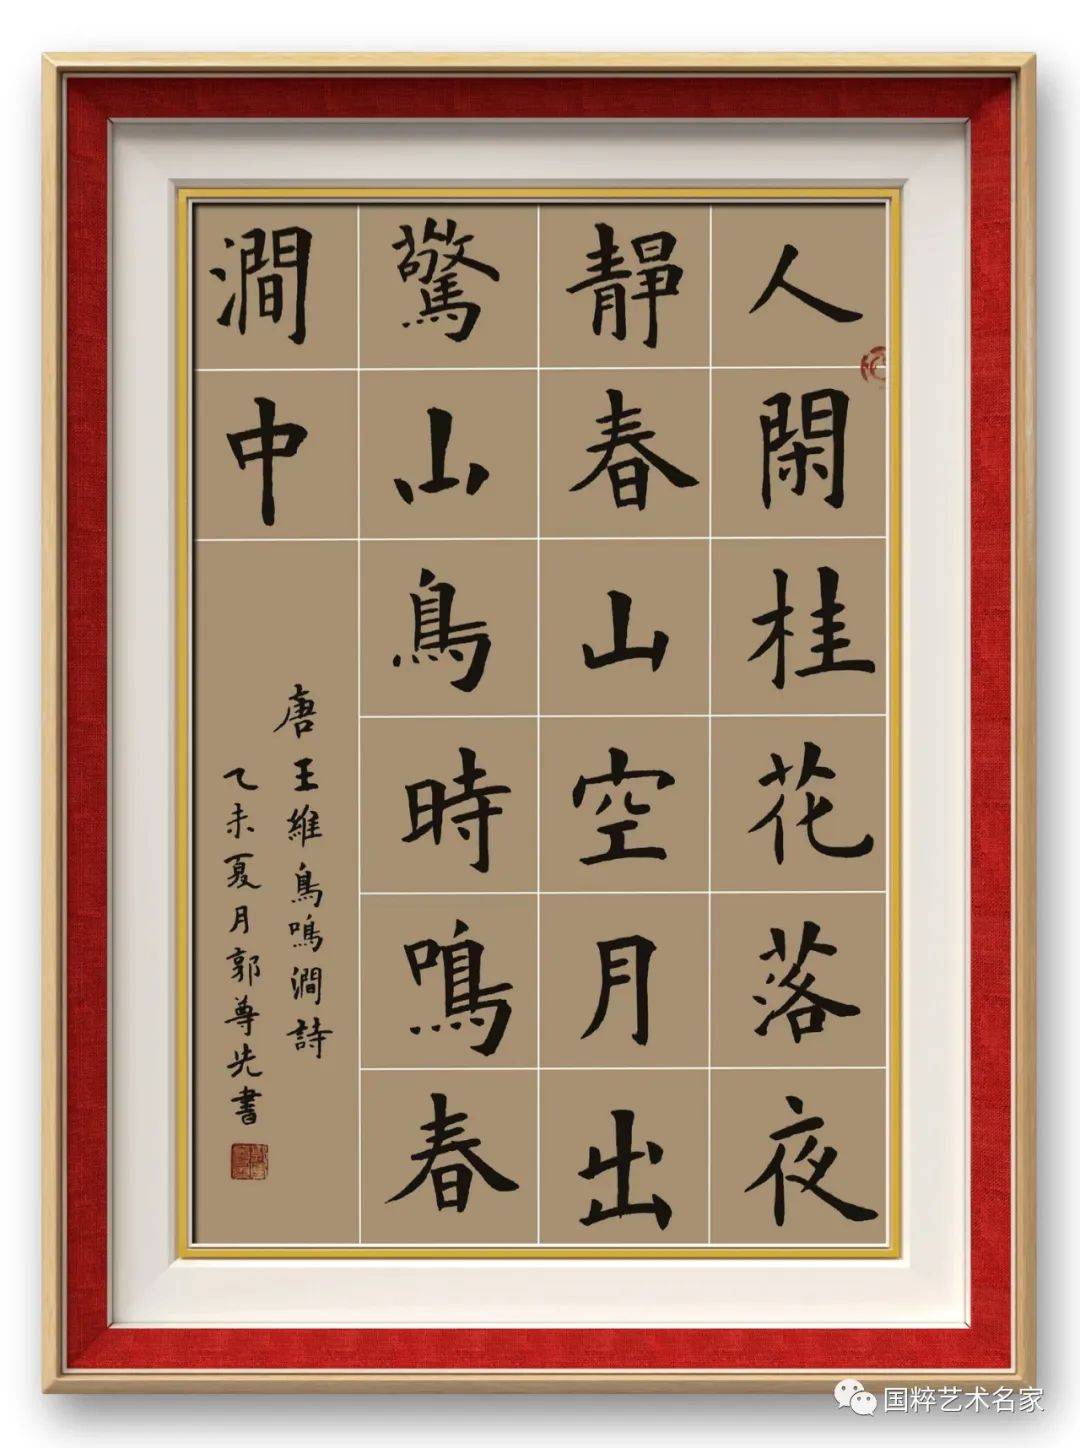 人閑桂花落夜
靜春山空月出
驚山鳥時鳴春
澗中
唐王維鳥鳴澗詩
乙未夏月郭尊先書
国粹艺术名家